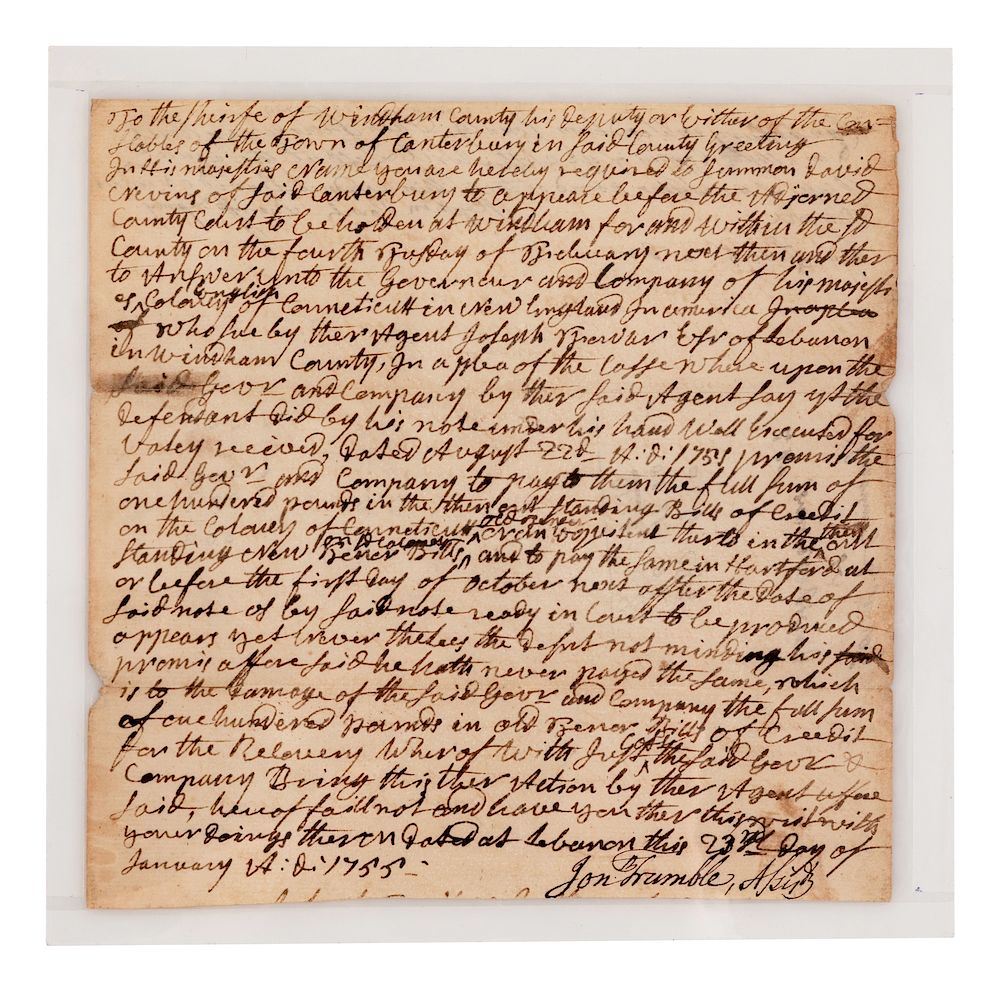 To the Sheirfe of Windham County his deputy or Either of the Con=
stables of the Town of Canterbury in said County Greeting
In His majesties Name you are hereby required to summon David
Nevins of said Canterbury to appeare before the Adjorned
County Court to be holden at Windham for and within the sd
County on the fourth Tusday of Febeuary next then and ther
to Answer unto the Governour and Company of his majesti
es English Colony of Conneticutt in New England In america In a plea
of who sue by ther Agent Joseph Esqr of Lebanon
in Windham County, In a plea of the Casse where upon the
said Govr and Company by ther said Agent say yt the
Defendant Did by his note under his hand Well Excecuted for
Valey received, Dated August 22d A:d: 175 promis the
said Govr and Company to pay to them the full sum of
one hundered pounds in the then out standing Bills of Creedit
on the Coloney of Conneticutt old tenor or an Equivilent therto in the then out
standing New Tenor Bills on sd Coloney and to pay the same in Hartford at
or before the first Day of October next affter the Date of
said note as by said note ready in Court to be produced
appears yet Never theless the defnt not minding his said
promis affore said he hath never payed the same, which
is to the Damage of the said Govr and Company the full sum
of one hundered pounds in old Tenor Bills of Creedit
for the Recovery Wherof With Just Cost the said Govr &
Company Bring this ther Action by ther Agent affore
said, hereof faill not and have you ther this writ with
your Doings theron Dated at Lebanon this 23rd Day of
January A:d: 1755-
Jonth Trumble, Assist